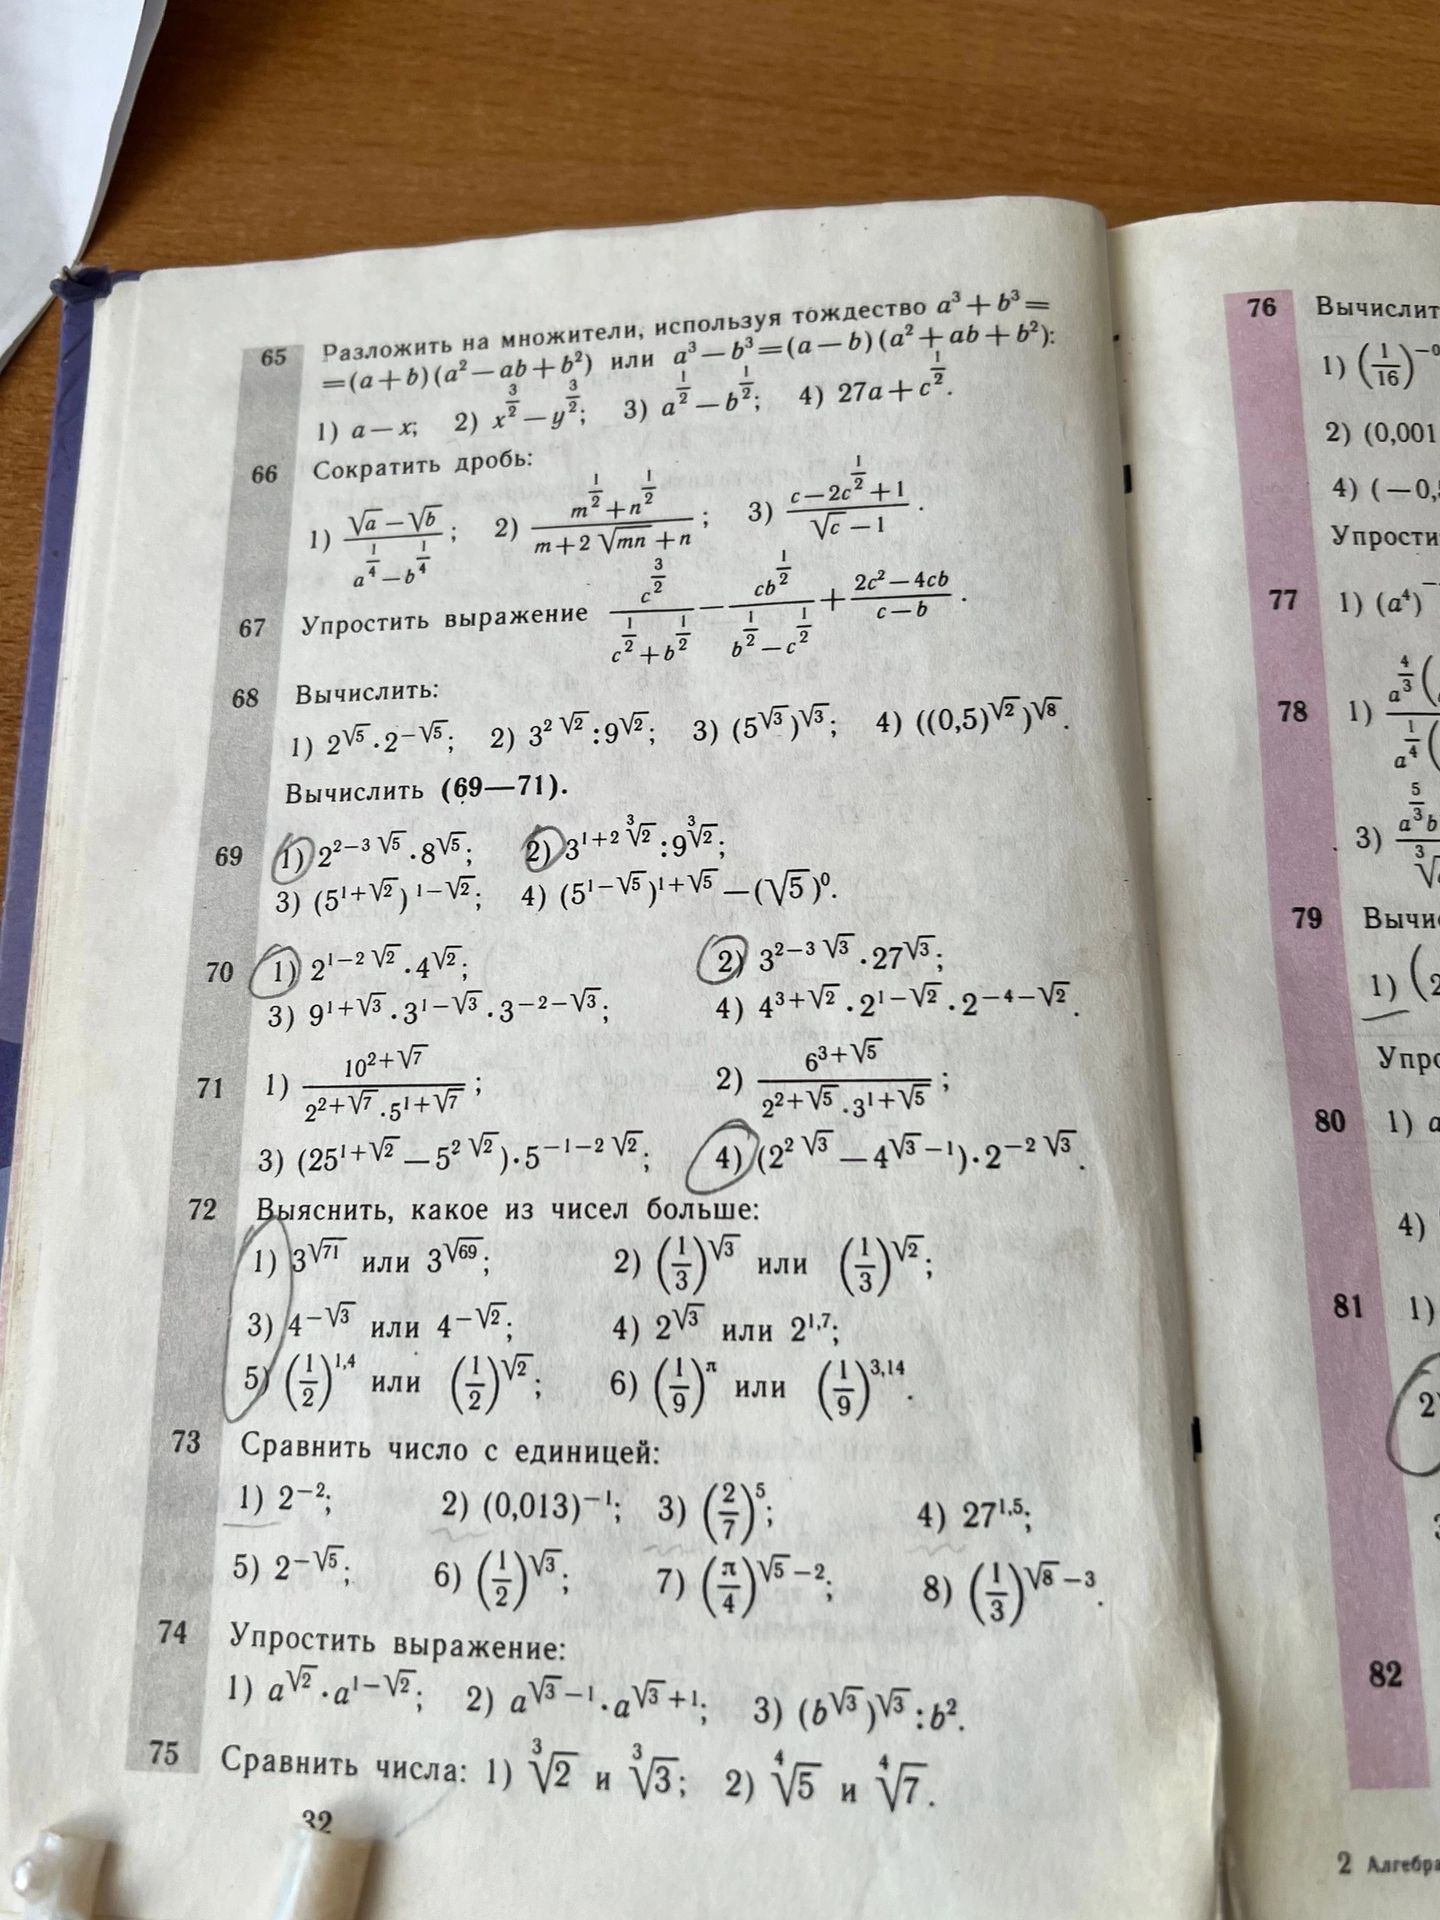 65 Разложить на множители, используя тождество a³ + b³ =
= (a + b) (a² − ab + b²) или a³ − b³ = (a − b) (a² + ab + b²):
1) a − x; 2) x^(3/2) − y^(3/2); 3) a^(1/2) − b^(1/2); 4) 27a + c^(1/2).
66 Сократить дробь:
1) (√a − √b)/(a^(1/4) − b^(1/4)); 2) (m^(1/2) + n^(1/2))/(m + 2√(mn) + n); 3) (c − 2c^(1/2) + 1)/(√c − 1).
67 Упростить выражение c^(3/2)/(c^(1/2) + b^(1/2)) − cb^(1/2)/(b^(1/2) − c^(1/2)) + (2c² − 4cb)/(c − b).
68 Вычислить:
1) 2^(√5) · 2^(−√5); 2) 3^(2√2) : 9^(√2); 3) (5^(√3))^(√3); 4) ((0,5)^(√2))^(√8).
Вычислить (69—71).
69 1) 2^(2−3√5) · 8^(√5); 2) 3^(1+2∛2) : 9^(∛2);
3) (5^(1+√2))^(1−√2); 4) (5^(1−√5))^(1+√5) − (√5)⁰.
70 1) 2^(1−2√2) · 4^(√2); 2) 3^(2−3√3) · 27^(√3);
3) 9^(1+√3) · 3^(1−√3) · 3^(−2−√3); 4) 4^(3+√2) · 2^(1−√2) · 2^(−4−√2).
71 1) 10^(2+√7)/(2^(2+√7) · 5^(1+√7)); 2) 6^(3+√5)/(2^(2+√5) · 3^(1+√5));
3) (25^(1+√2) − 5^(2√2)) · 5^(−1−2√2); 4) (2^(2√3) − 4^(√3−1)) · 2^(−2√3).
72 Выяснить, какое из чисел больше:
1) 3^(√71) или 3^(√69); 2) (1/3)^(√3) или (1/3)^(√2);
3) 4^(−√3) или 4^(−√2); 4) 2^(√3) или 2^(1,7);
5) (1/2)^(1,4) или (1/2)^(√2); 6) (1/9)^π или (1/9)^(3,14).
73 Сравнить число с единицей:
1) 2⁻²; 2) (0,013)⁻¹; 3) (2/7)⁵; 4) 27^(1,5);
5) 2^(−√5); 6) (1/2)^(√3); 7) (π/4)^(√5−2); 8) (1/3)^(√8−3).
74 Упростить выражение:
1) a^(√2) · a^(1−√2); 2) a^(√3−1) · a^(√3+1); 3) (b^(√3))^(√3) : b².
75 Сравнить числа: 1) ∛2 и ∛3; 2) ∜5 и ∜7.
32
76
1) (1/16)
2) (0,001
4) (−0,
77 1) (a⁴)
78 1)
3)
79
1) (2
80 1) a
4)
81 1)
2)
82
2